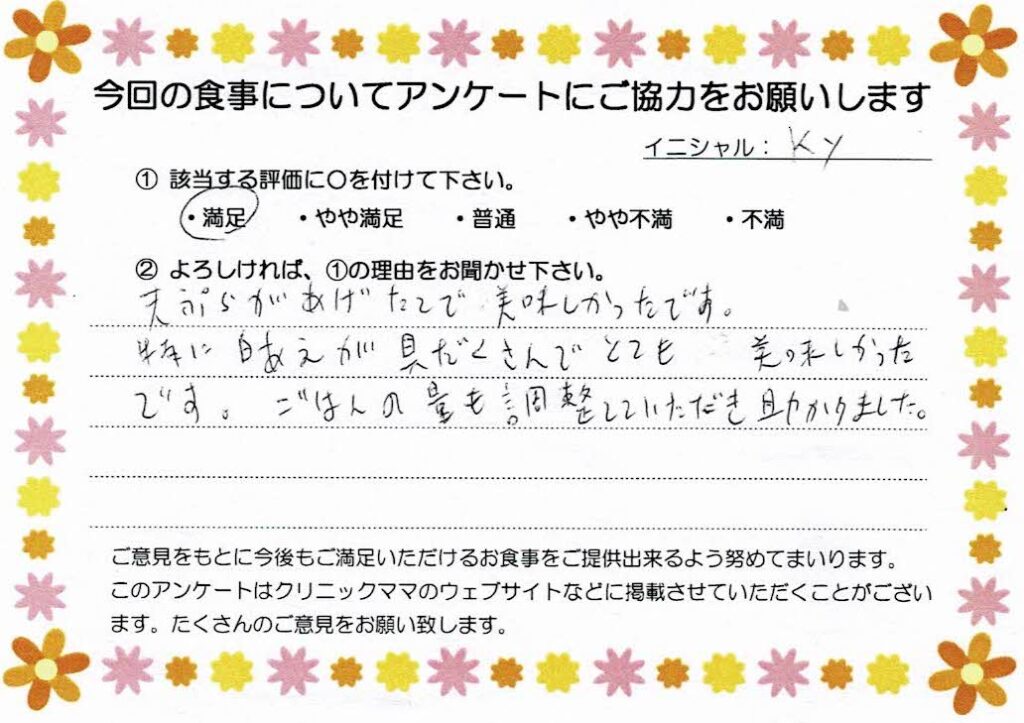 今回の食事についてアンケートにご協力をお願いします
イニシャル： KY
① 該当する評価に〇を付けて下さい。
・満足 ・やや満足 ・普通 ・やや不満 ・不満
② よろしければ、①の理由をお聞かせ下さい。
天ぷらがあげたてで 美味しかったです。
特に 白あえが 具だくさんで とても 美味しかった
です。 ごはんの量も調整していただき助かりました。
ご意見をもとに今後もご満足いただけるお食事をご提供出来るよう努めてまいります。
このアンケートはクリニックママのウェブサイトなどに掲載させていただくことがござい
ます。たくさんのご意見をお願い致します。